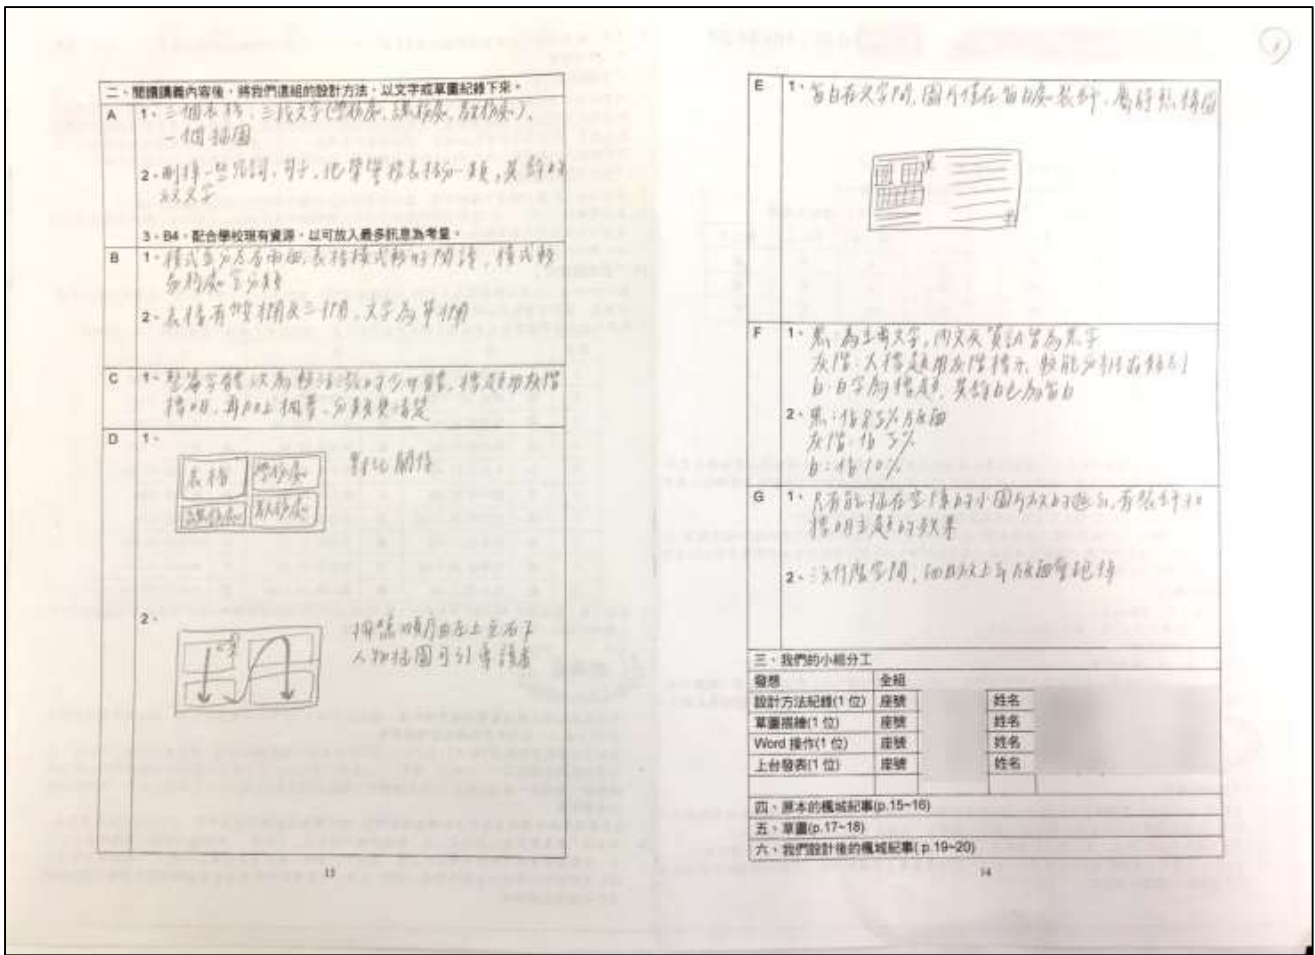 二、閱讀講義內容後，將我們這組的設計方法，以文字或草圖紀錄下來。
A
1、三個表格，三段文字(學務處、總務處、教務處)、
一個插圖
2、刪掉一些冗詞、句子，把榮譽榜表格分一類，其餘的
放文字
3、B4，配合學校現有資源，以可放入最多訊息為考量。
B
1、樣式區分左右兩面，表格樣式較好閱讀，樣式較
2、表格有雙欄及三欄，文字為單欄
C
1、
標明，再加上摘要，分類更清楚
D
1、
表格
學務處
總務處
教務處
對比關係
2、
按照順序由左上至右下
人物插圖可引導讀者
13
E
1、留白在文字間，圖片僅在留白處裝飾，屬靜態構圖
F
1、黑：為主要文字，內文及資訊皆為黑字
灰階：大標題用灰階標示，較能分辨出類別
白：白字為標題，其餘白色為留白
2、黑：佔85%版面
灰階：佔5%
白：佔10%
G
1、只有能插在空隙的小圖片
標明主題的效果
2、沒什麼空間，
三、我們的小組分工
發想 全組
設計方法紀錄(1 位) 座號 姓名
草圖描繪(1 位) 座號 姓名
Word 操作(1 位) 座號 姓名
上台發表(1 位) 座號 姓名
四、原本的楓城紀事(p.15~16)
五、草圖(p.17~18)
六、我們設計後的楓城紀事( p.19~20)
14